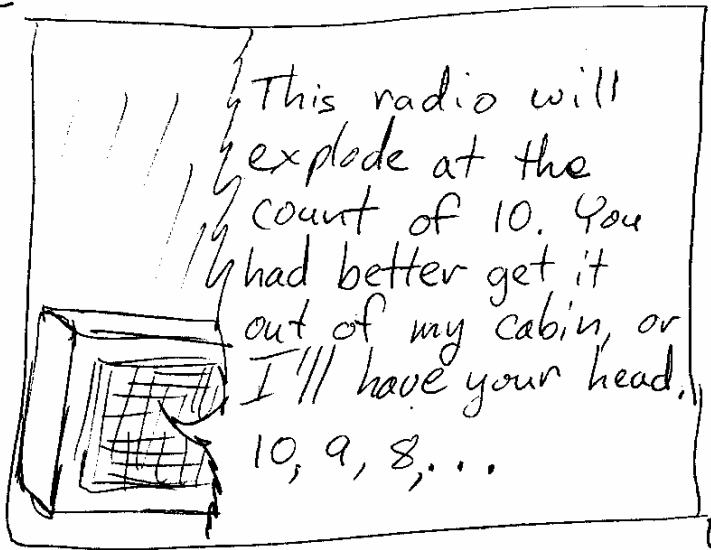 This radio will
explode at the
count of 10. You
had better get it
out of my cabin, or
I'll have your head.
10, 9, 8,...